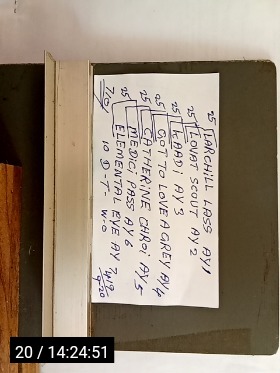 25 LARCHILL LASS AY 1
25 LOVAT SCOUT AY 2
25 KAADI AY 3
25 GOT TO LOVE A GREY AY 4
25 CATHERINE CHROI AY 5
25 MEDICI PASS AY 6
ELEMENTAL EYE AY 7
10 D-T- W-O
20 / 14:24:51